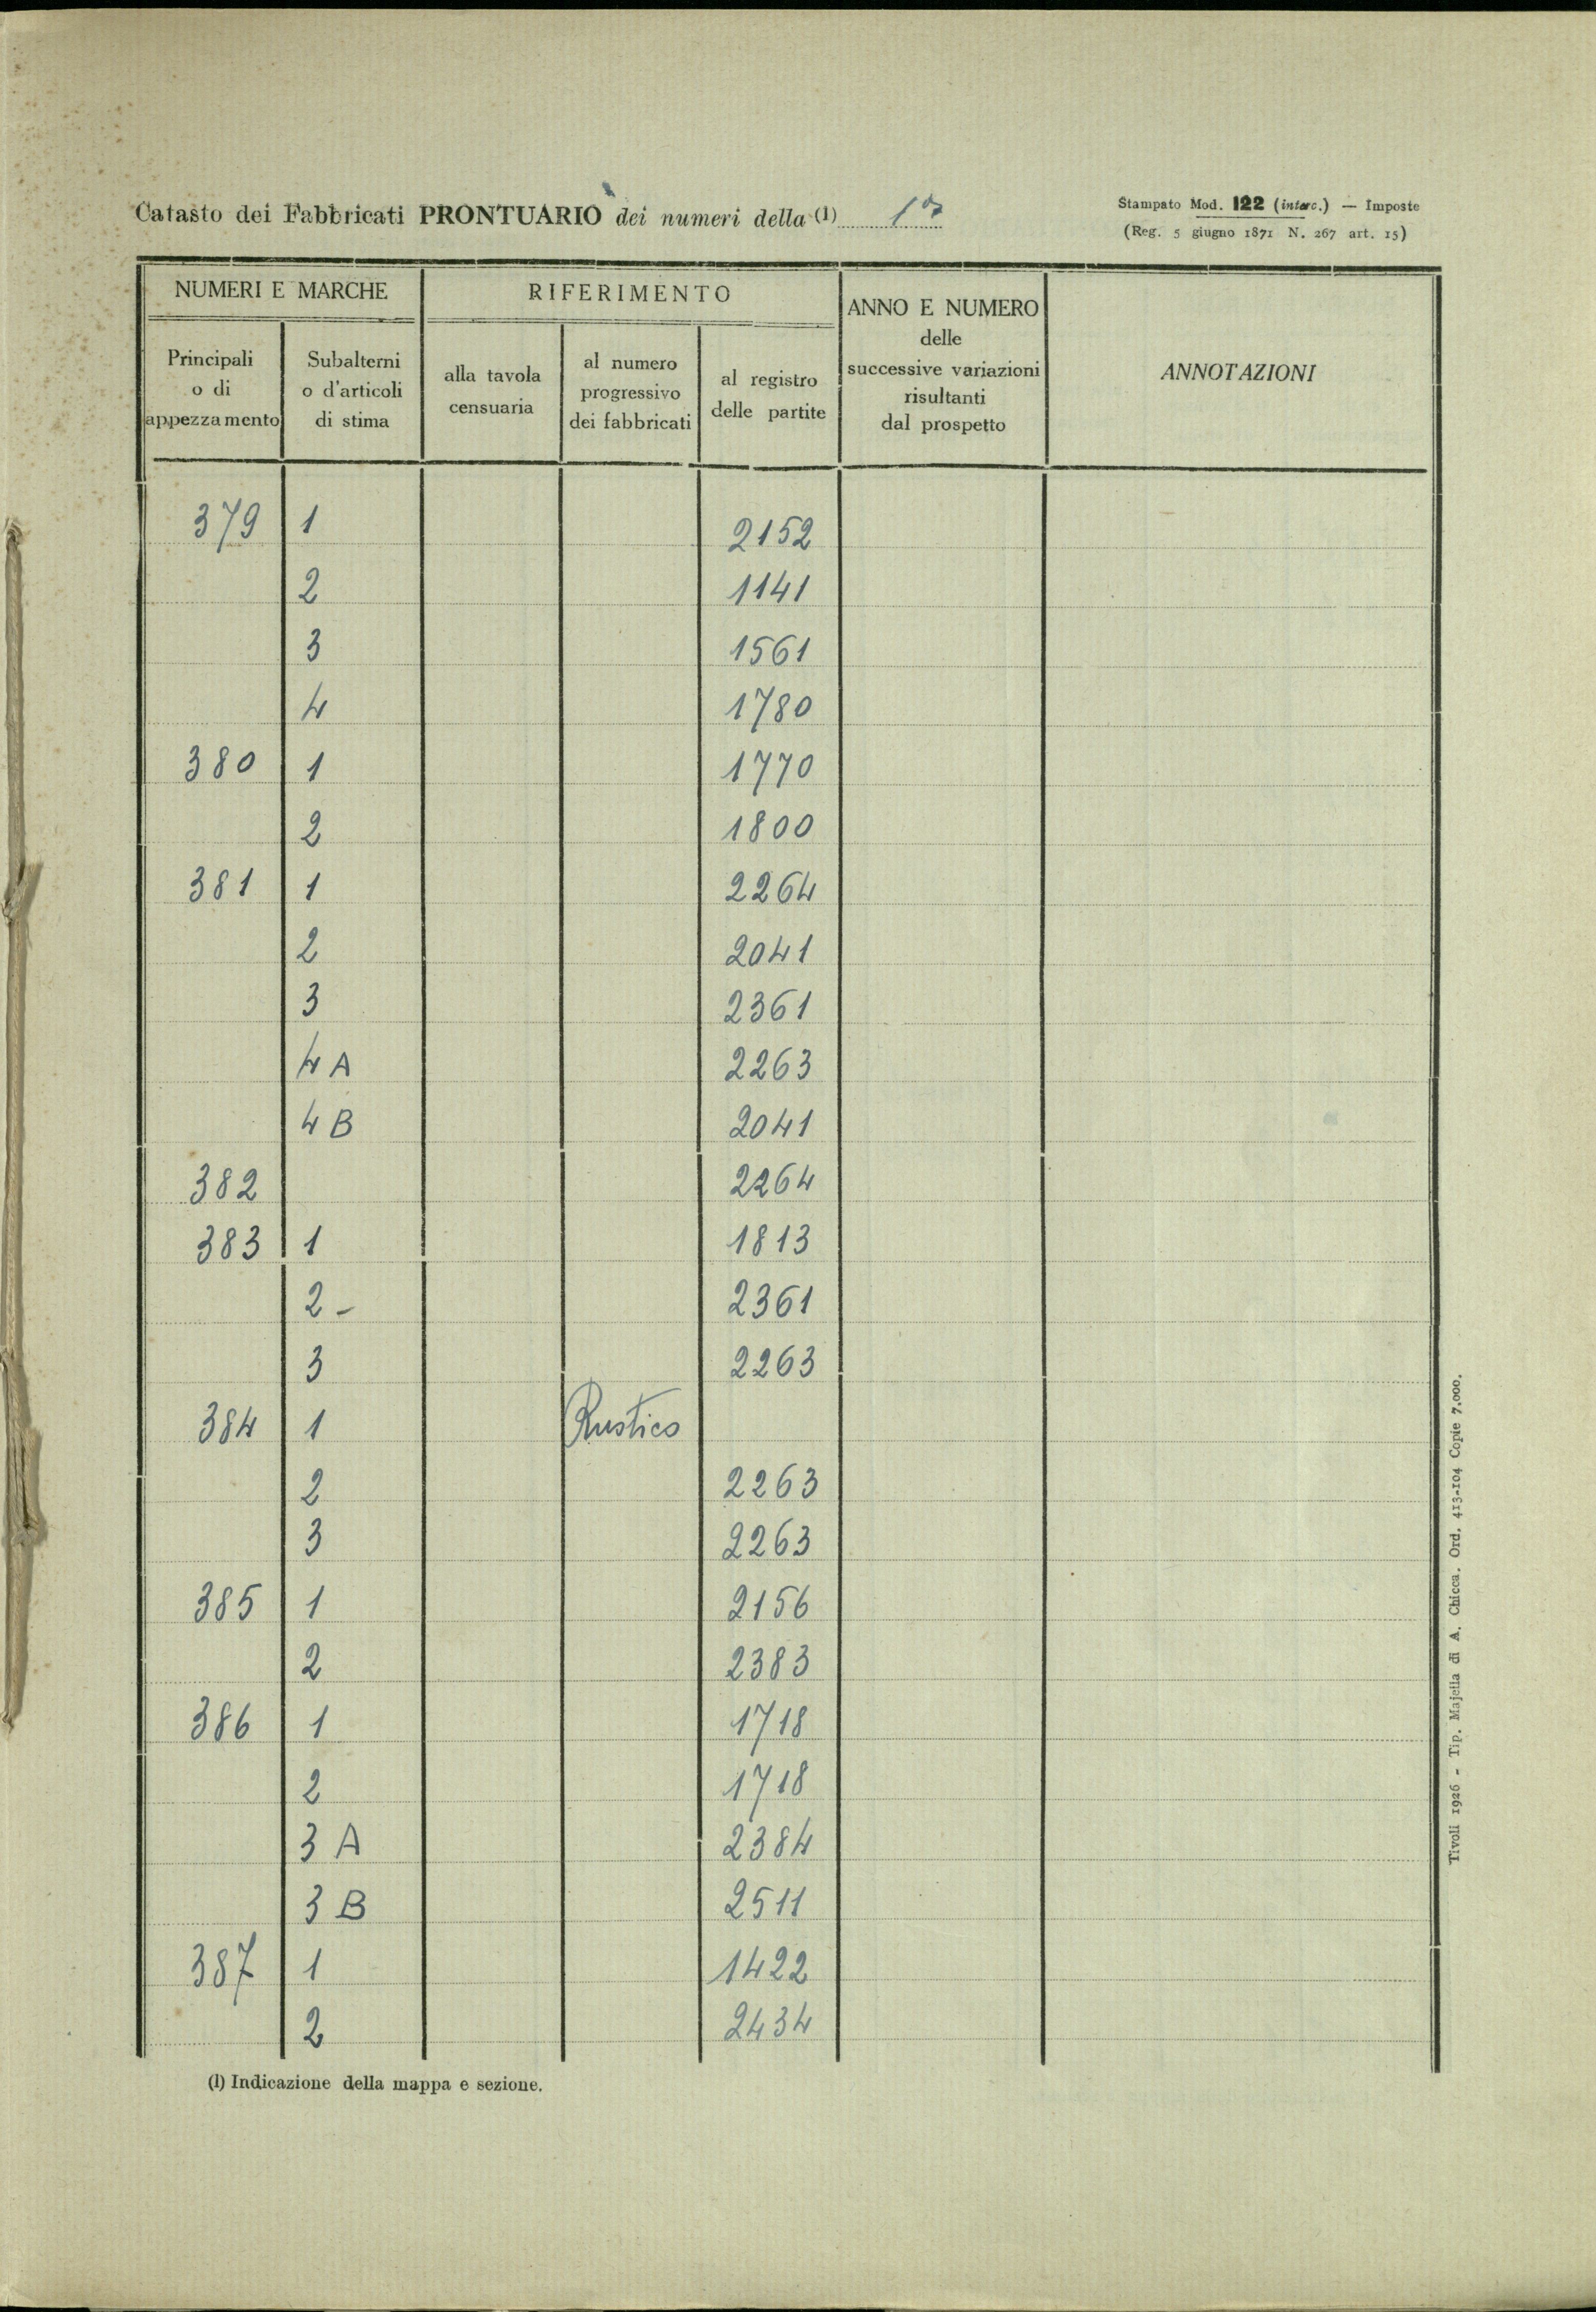 Catasto dei Fabbricati PRONTUARIO dei numeri della (1) 1ª
Stampato Mod. 122 (interc.) — Imposte
(Reg. 5 giugno 1871 N. 267 art. 15)
NUMERI E MARCHE
RIFERIMENTO
ANNO E NUMERO
delle
successive variazioni
risultanti
dal prospetto
ANNOTAZIONI
Principali
o di
appezzamento
Subalterni
o d'articoli
di stima
alla tavola
censuaria
al numero
progressivo
dei fabbricati
al registro
delle partite
379 1 2152
2 1141
3 1561
4 1780
380 1 1770
2 1800
381 1 2264
2 2041
3 2361
4 A 2263
4 B 2041
382 2264
383 1 1813
2 - 2361
3 2263
384 1 Rustico
2 2263
3 2263
385 1 2156
2 2383
386 1 1718
2 1718
3 A 2384
3 B 2511
387 1 1422
2 2434
(1) Indicazione della mappa e sezione.
Tivoli 1926 - Tip. Majella di A. Chicca. Ord. 413-104 Copie 7.000.